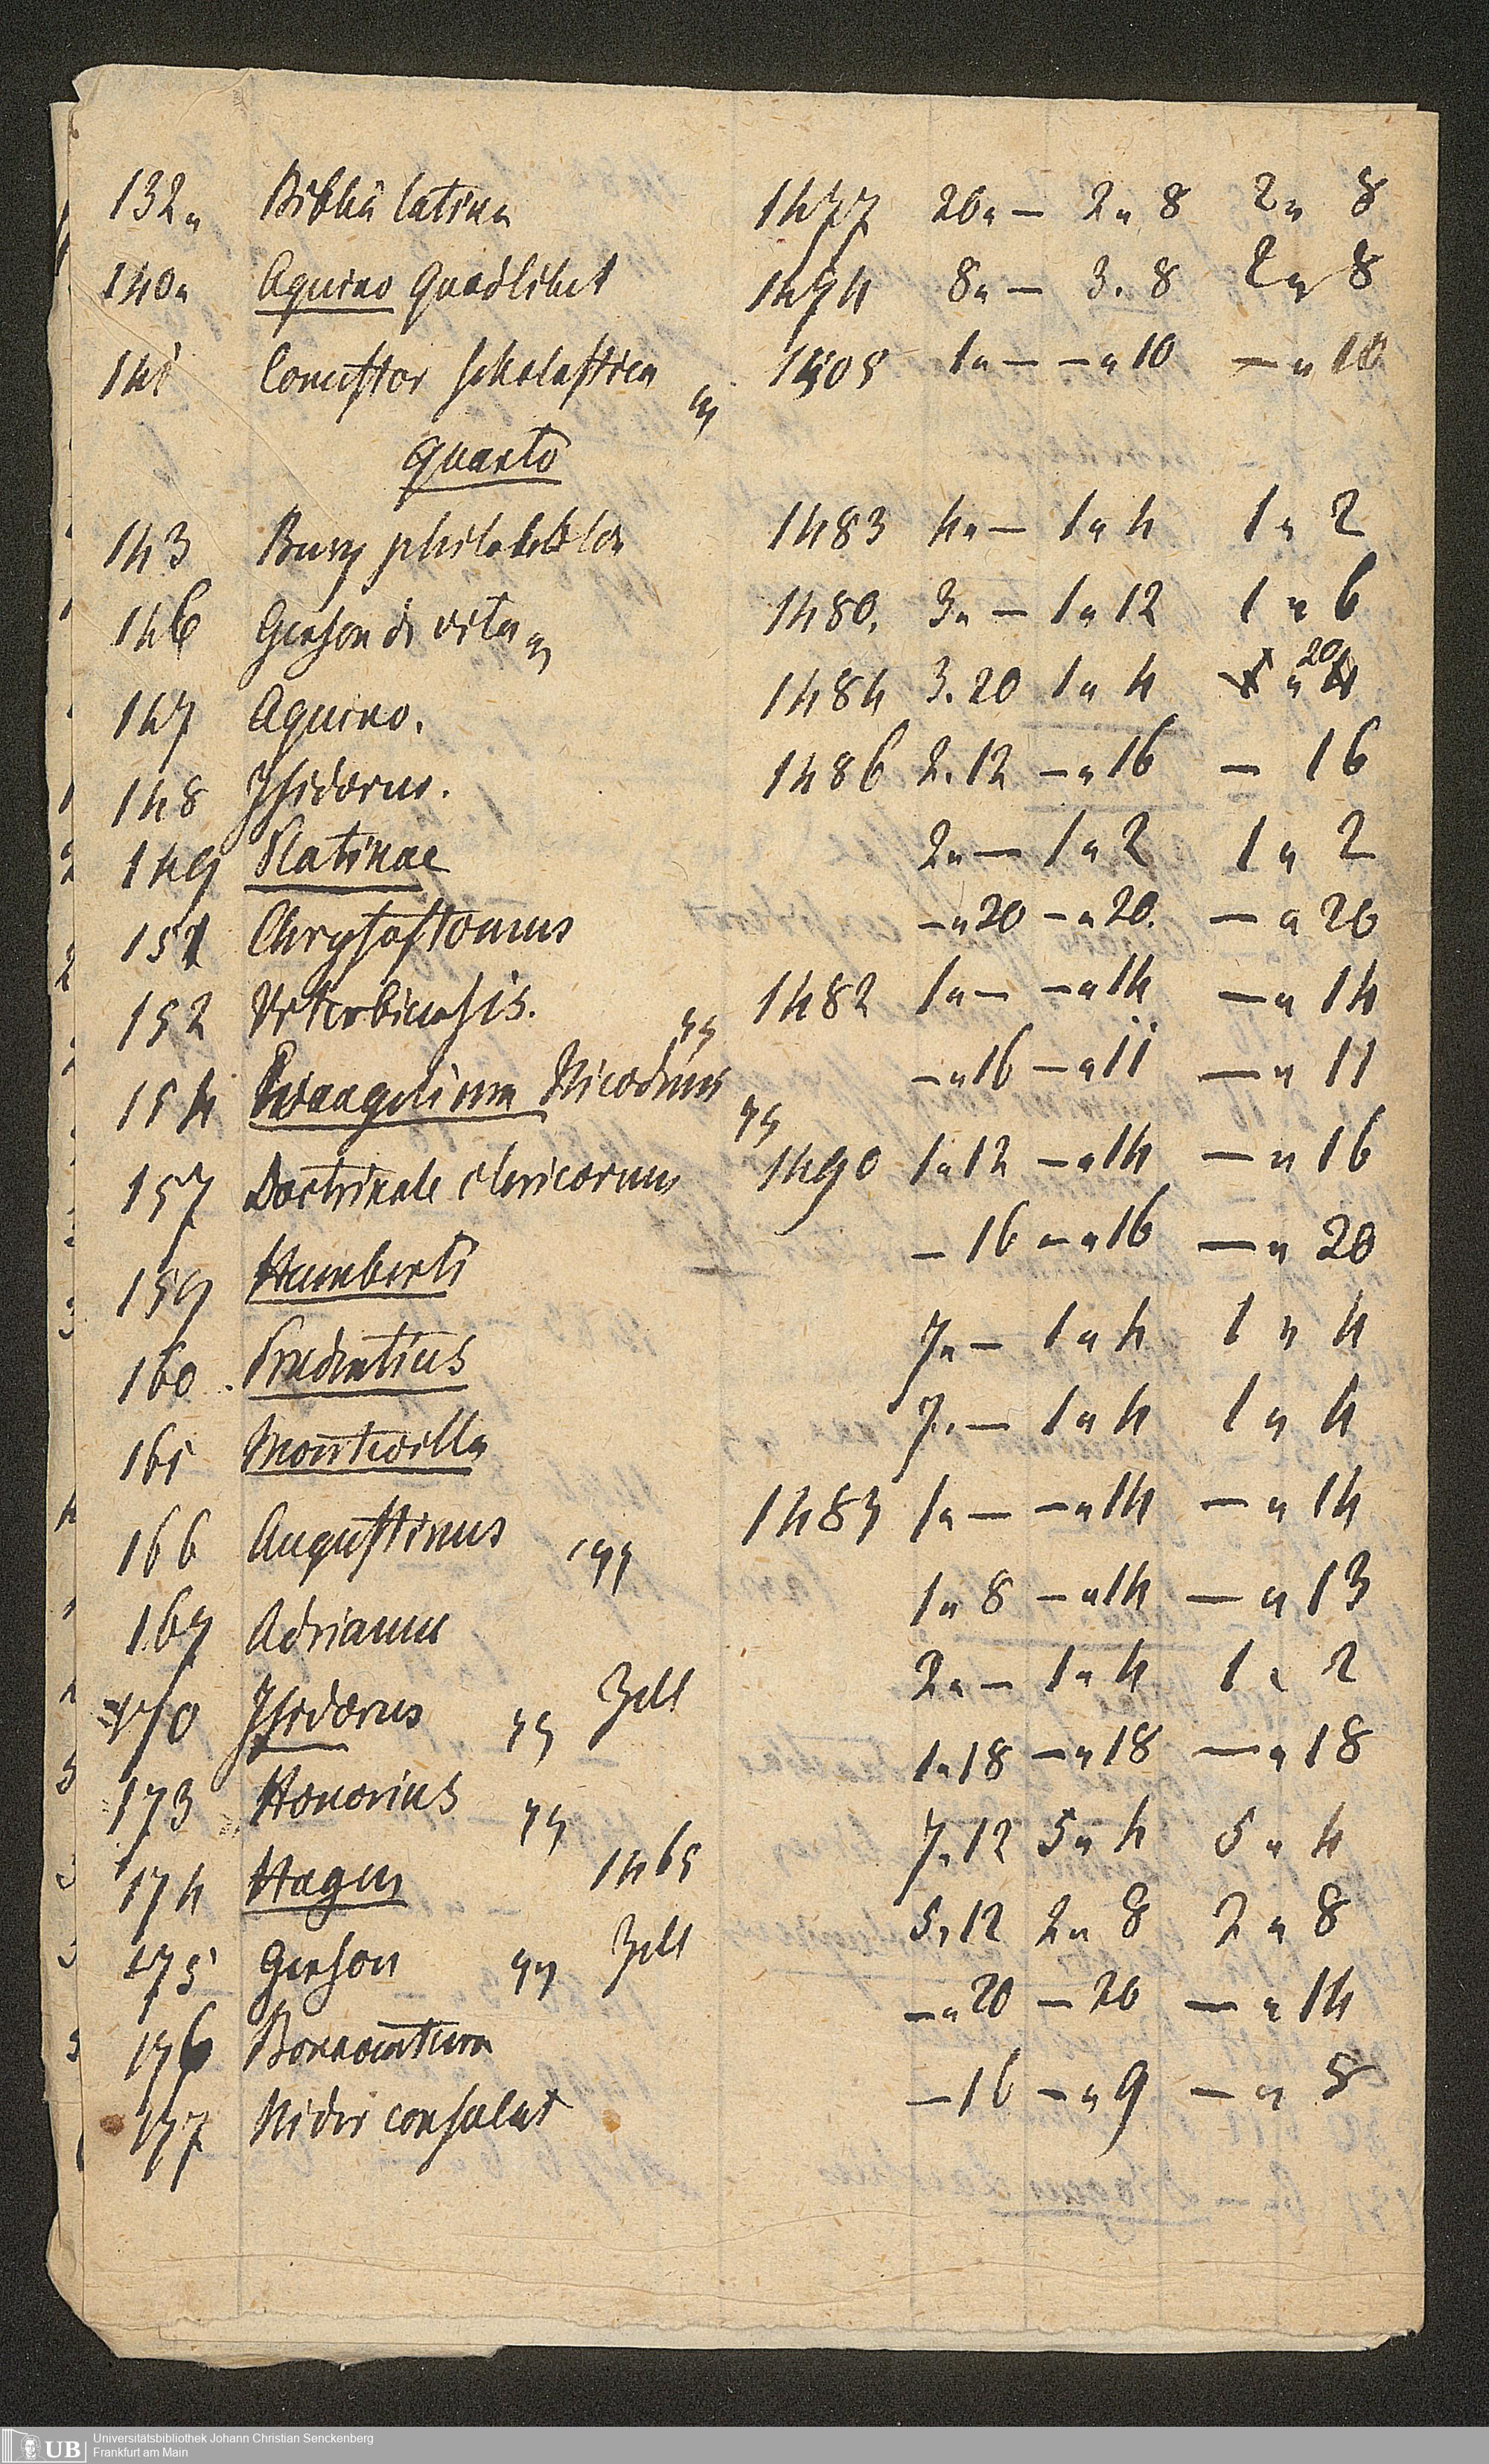 132„ Biblia latina 1477 20„— 2„8 2„8
140„ Aquino Quodlibet 1474 8„— 3.8 2„8
141 Comestor scholastica 1505 1„— —„10 —„10
Quarto
143 Bury 1483 4„— 1„4 1„2
146 Gerson de vita 1480. 3„— 1„12 1„6
147 Aquino. 1484 3.20 1„4 „20
148 Isidorus. 1486 2.12 —„16 — 16
149 Platinae 2„— 1„2 1„2
151 Chrysostomus —„20 —„20. —„20
152 Viterbiensis. 1482 1„— —„14 —„14
154 Evangelium Nicodemi —„16 —„11 —„11
157 Doctrinale clericorum 1490 1„12 —„14 —„16
159 Humberti —16 —„16 —„20
160. Prudentius 7„— 1„4 1„4
161 Montevilla 7.— 1„4 1„4
166 Augustinus 1483 1„— —„14 —„14
167 Adrianus 1„8 —„14 —„13
170 Isidorus Zell 2„— 1„4 1„2
173 Honorius 1„18 —„18 —„18
174 Hagen 1465 7.12 5„4 5„4
175 Gerson Zell 5„12 2„8 2„8
176 Bonaventura —„20 —20 —„14
177 Nider consolat —16 —„9 —„8
UB Universitätsbibliothek Johann Christian Senckenberg
Frankfurt am Main